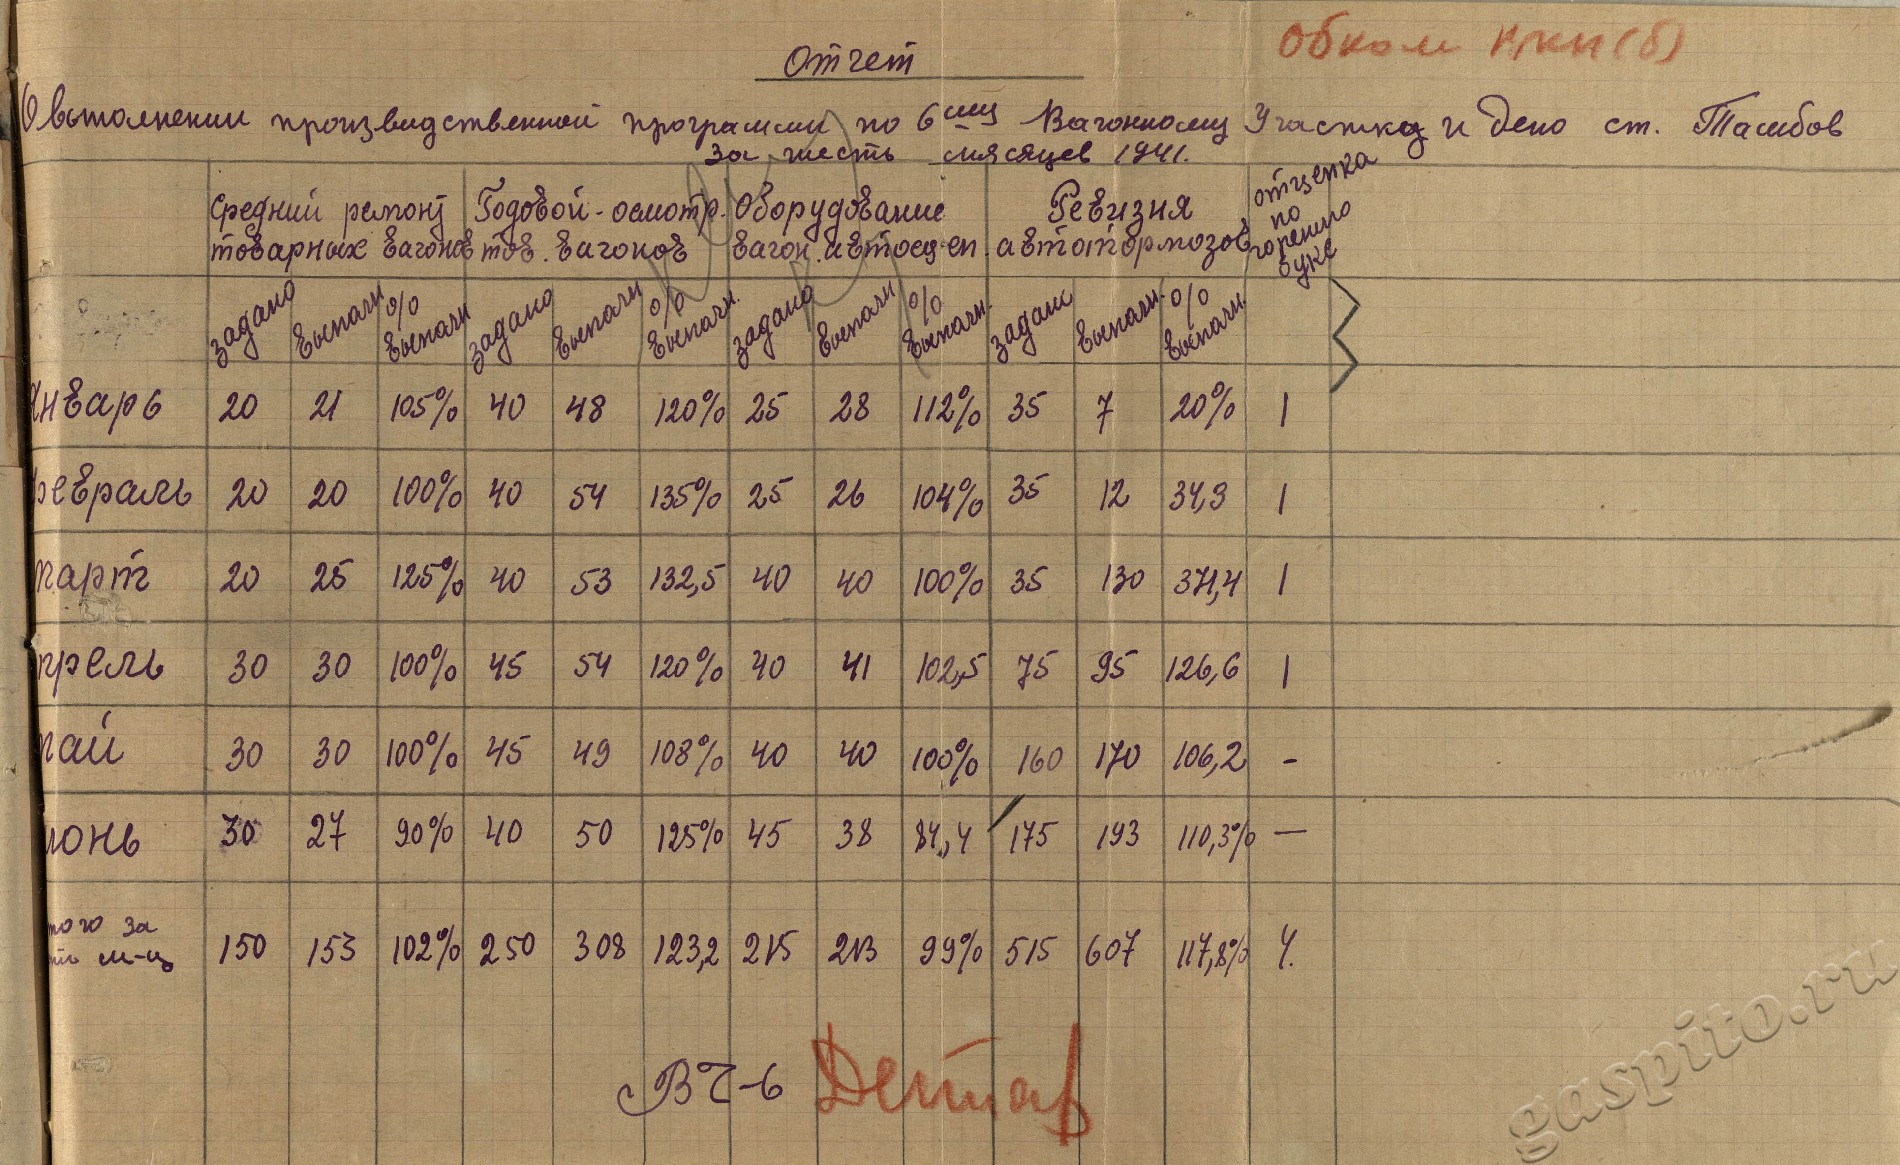 Обком ВКП(б)
Отчет
О выполнении производственной программы по 6му Вагонному Участку и Депо ст. Тамбов
за шесть месяцев 1941.
Средний ремонт товарных вагонов | Годовой-осмотр. тов. вагонов | Оборудование вагон. автосцеп. | Ревизия автотормозов | отцепка по горению букс
задано | выполн | % выполн | задано | выполн | % выполн. | задано | выполн | % выполн. | задано | выполн. | % выполн.
Январь | 20 | 21 | 105% | 40 | 48 | 120% | 25 | 28 | 112% | 35 | 7 | 20% | 1
февраль | 20 | 20 | 100% | 40 | 54 | 135% | 25 | 26 | 104% | 35 | 12 | 34,3 | 1
март | 20 | 25 | 125% | 40 | 53 | 132,5 | 40 | 40 | 100% | 35 | 130 | 371,4 | 1
прель | 30 | 30 | 100% | 45 | 54 | 120% | 40 | 41 | 102,5 | 75 | 95 | 126,6 | 1
май | 30 | 30 | 100% | 45 | 49 | 108% | 40 | 40 | 100% | 160 | 170 | 106,2 | -
юнь | 30 | 27 | 90% | 40 | 50 | 125% | 45 | 38 | 84,4 | 175 | 193 | 110,3% | —
того за ть м-ц | 150 | 153 | 102% | 250 | 308 | 123,2 | 215 | 213 | 99% | 515 | 607 | 117,8% | 4.
ВЧ-6
gaspito.ru